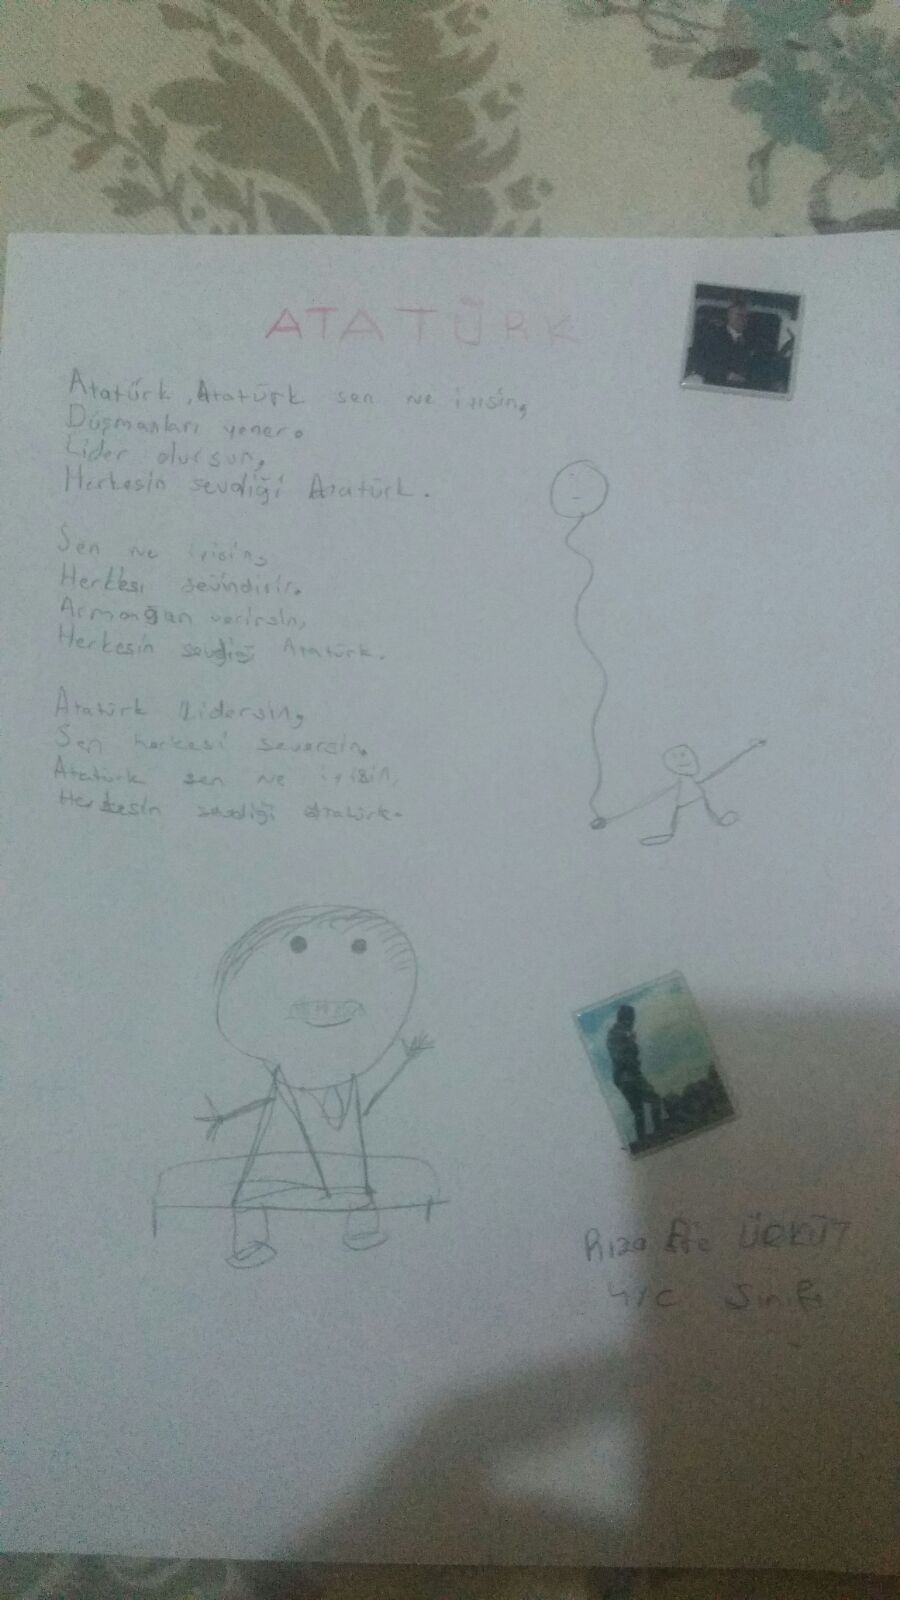 ATATÜRK
Atatürk, Atatürk sen ne iyisin,
Düşmanları yener.
Lider olursun,
Herkesin sevdiği Atatürk.
Sen ne iyisin,
Herkesi sevindirir.
Armağan verirsin,
Herkesin sevdiği Atatürk.
Atatürk lidersin,
Sen herkesi seversin.
Atatürk sen ne iyisin,
Herkesin sevdiği Atatürk.
Rıza Efe ÜRKÜT
4/C Sınıfı